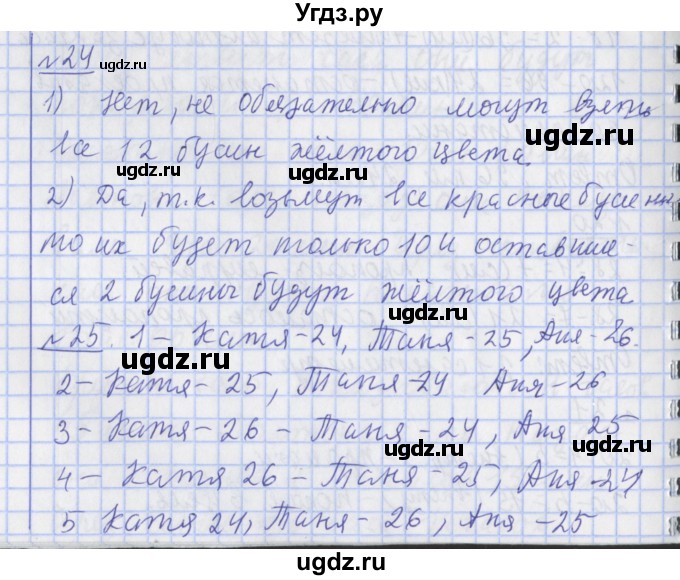 Угдз.ру
№24 ugdz.ru ugdz.ru ugdz.ru
1) Нет, не обязательно могут взять
ugdz.ru
все 12 бусин жёлтого цвета.
ugdz.ru ugdz.ru
2) Да, т.к. возьмут все красные бусины
то их будет только 10 и оставши-
ugdz.ru
ся 2 бусины будут жёлтого цвета
ugdz.ru
№25. 1 – Катя – 24, Таня – 25, Аня – 26.
ugdz.ru
2 – Катя – 25, Таня – 24 Аня – 26
ugdz.ru
3 – Катя – 26 – Таня – 24, Аня 25
ugdz.ru ugdz.ru
4 – Катя 26 – Таня – 25, Аня – 24
ugdz.ru
5 Катя 24, Таня – 26, Аня – 25
ugdz.ru ugdz.ru